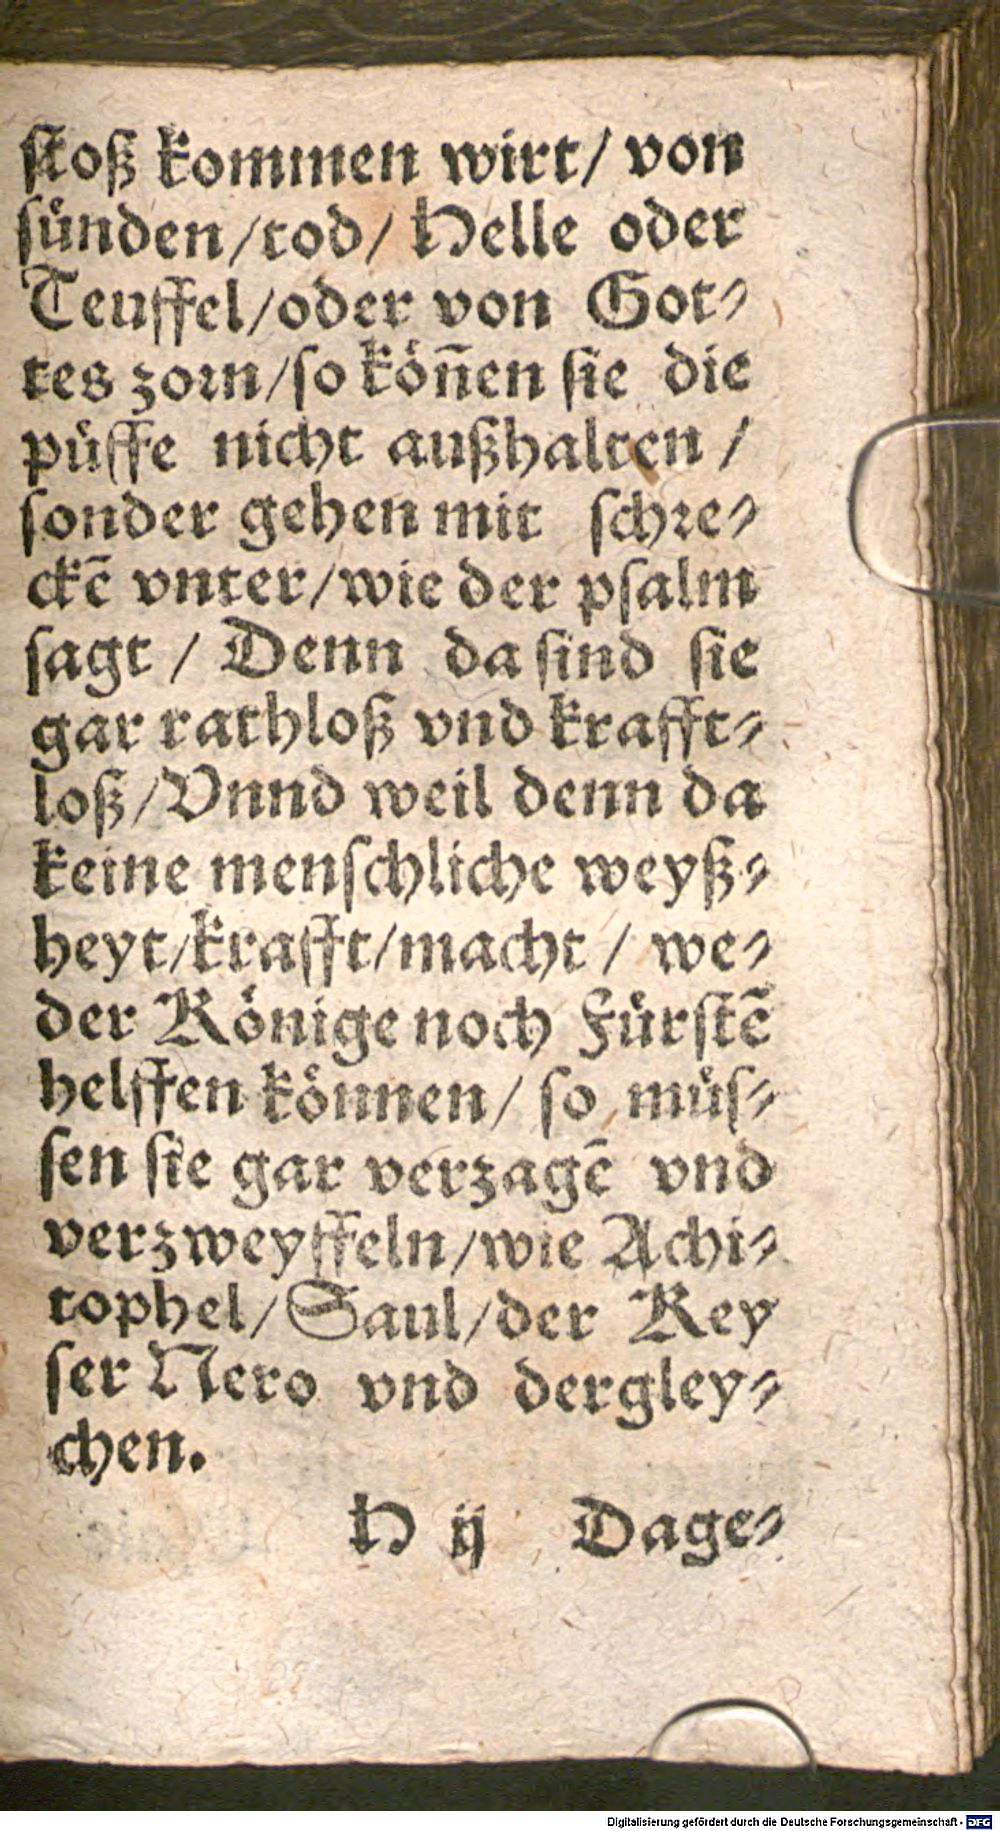 ſtoß kommen wirt/ von
ſuͤnden/tod/ Helle oder
Teuffel/oder von Got⸗
tes zoꝛn/ſo koͤn̄en ſie die
puͤffe nicht außhalten /
ſonder gehen mit ſchꝛe⸗
ckē vnter/wie der pſalm
ſagt / Denn da ſind ſie
gar rathloß vnd krafft⸗
loß/Vnnd weil denn da
keine menſchliche weyß⸗
heyt/krafft/macht / we⸗
der Koͤnige noch Fuͤrſtē
helffen koͤnnen/ ſo muͤſ⸗
ſen ſie gar verzagē vnd
verzweyffeln/wie Achi⸗
tophel/Saul/der Key
ſer Nero vnd dergley⸗
chen.
H ij Dage⸗
Digitalisierung gefördert durch die Deutsche Forschungsgemeinschaft - DFG